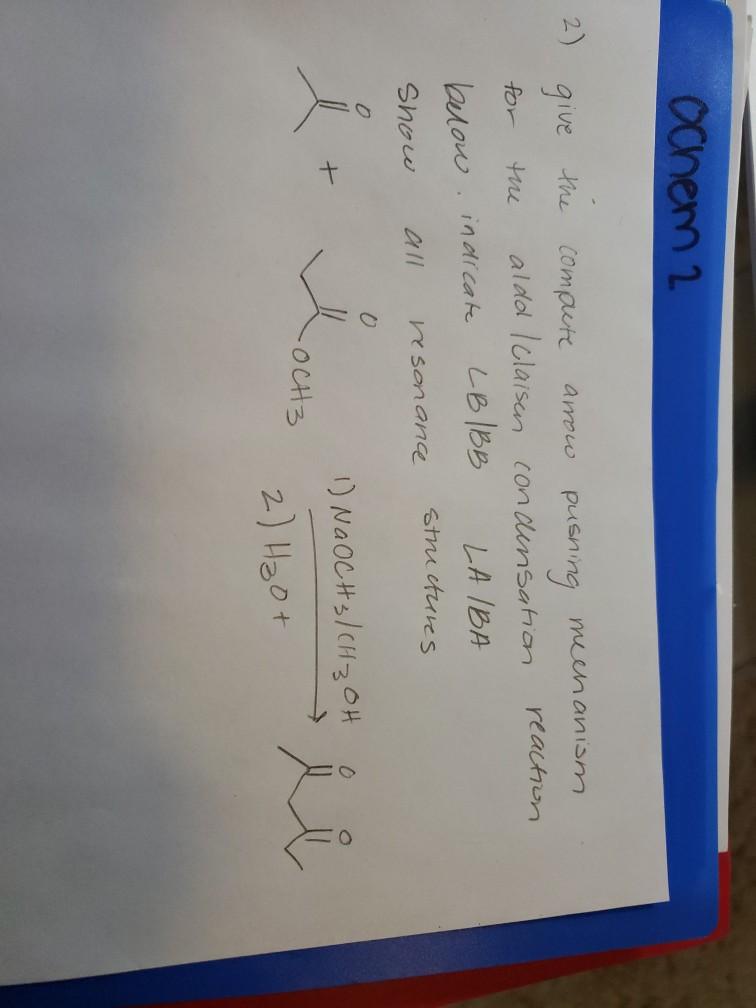 ochem 2
2) give the compute arrow pushing mechanism
for the aldol/claisen condensation reaction
below. indicate LB/BB LA/BA
show all resonance structures
O O 1) NaOCH3/CH3OH O O
+ OCH3 2) H3O+